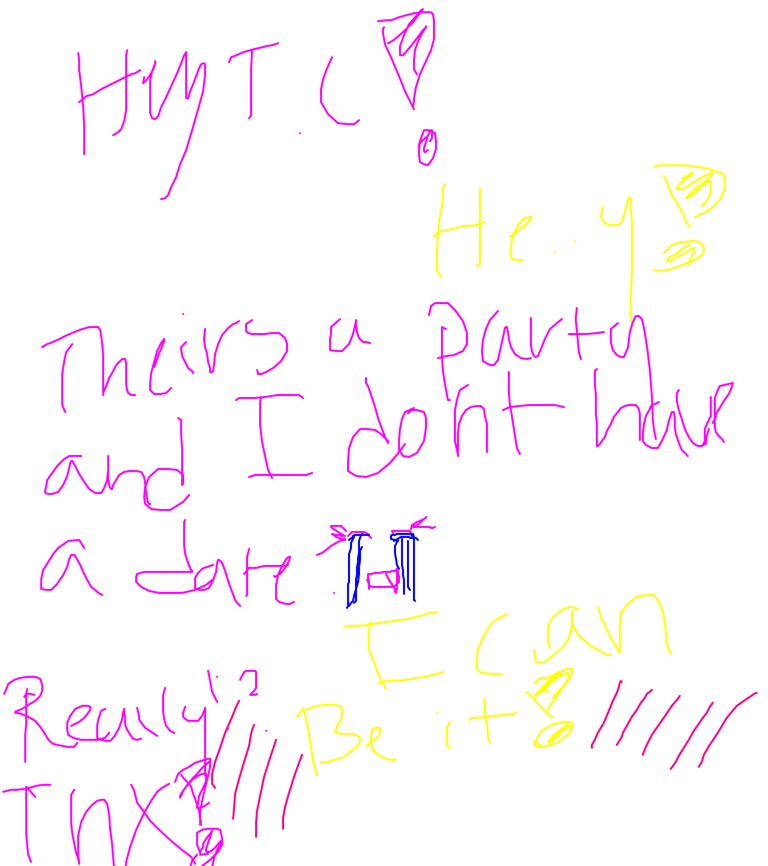 Hey T.C!
He..y!
Theirs a party
and I dont have
a date
I can
Be it!
Really?
Thx!